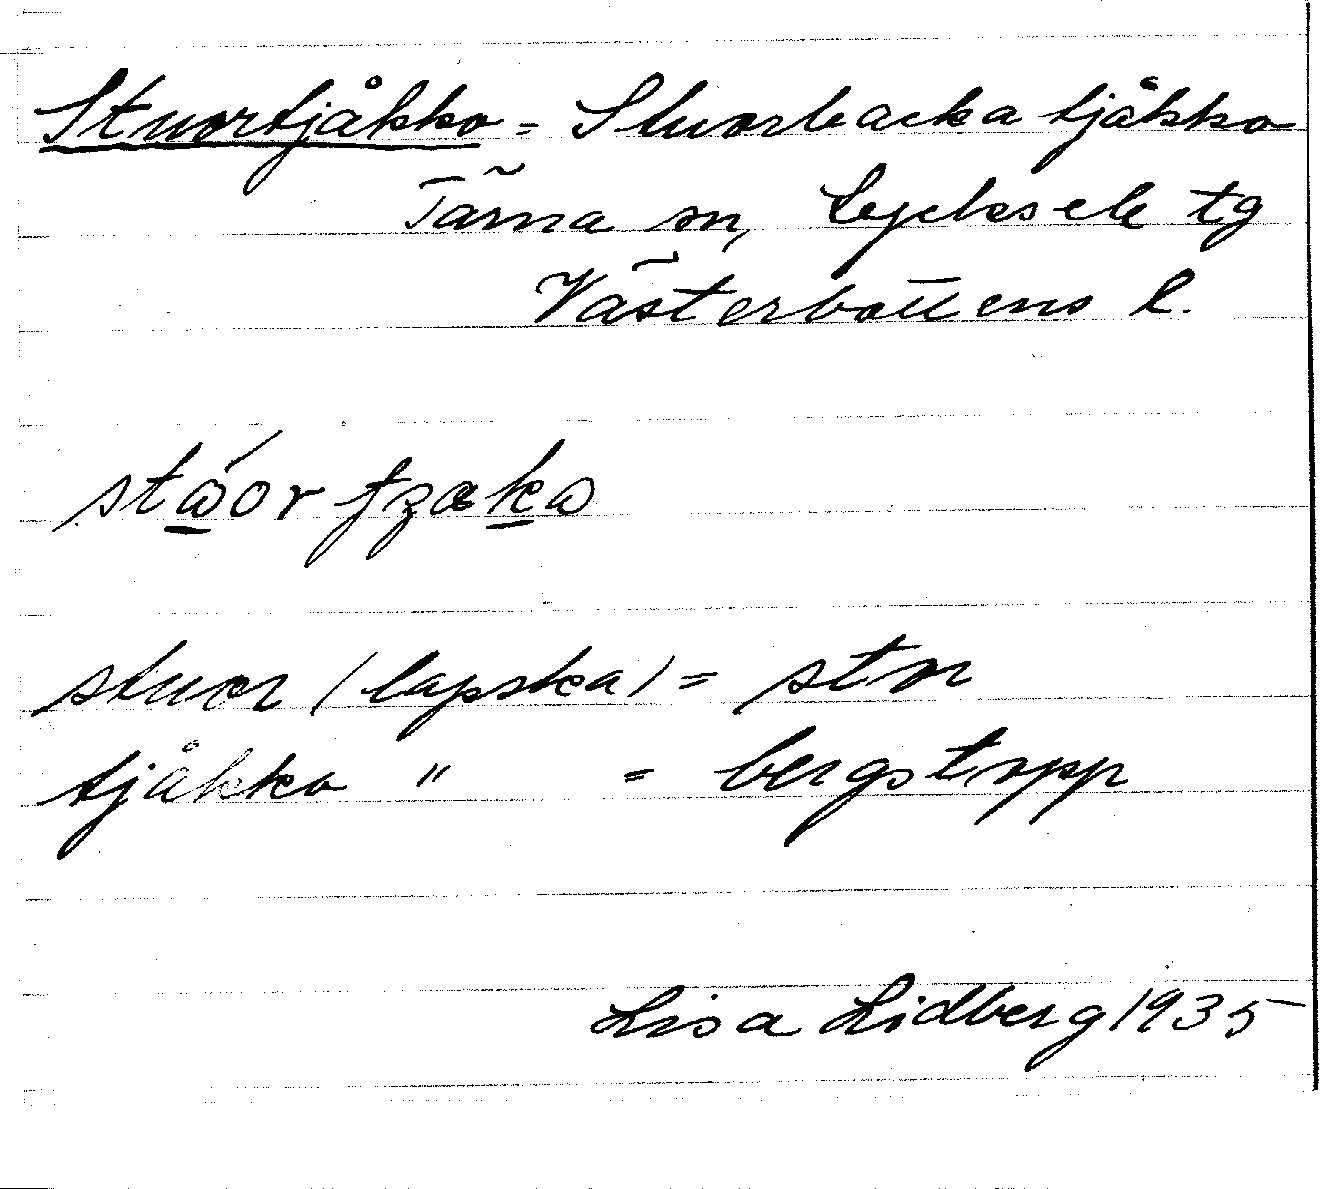 Stuortjåkko = Stuorbacka tjåkko
Tärna sn, Lycksele tg
Västerbottens l.
stuor (lapska) = stor
tjåkko " = bergstopp
Lisa Lidberg 1935